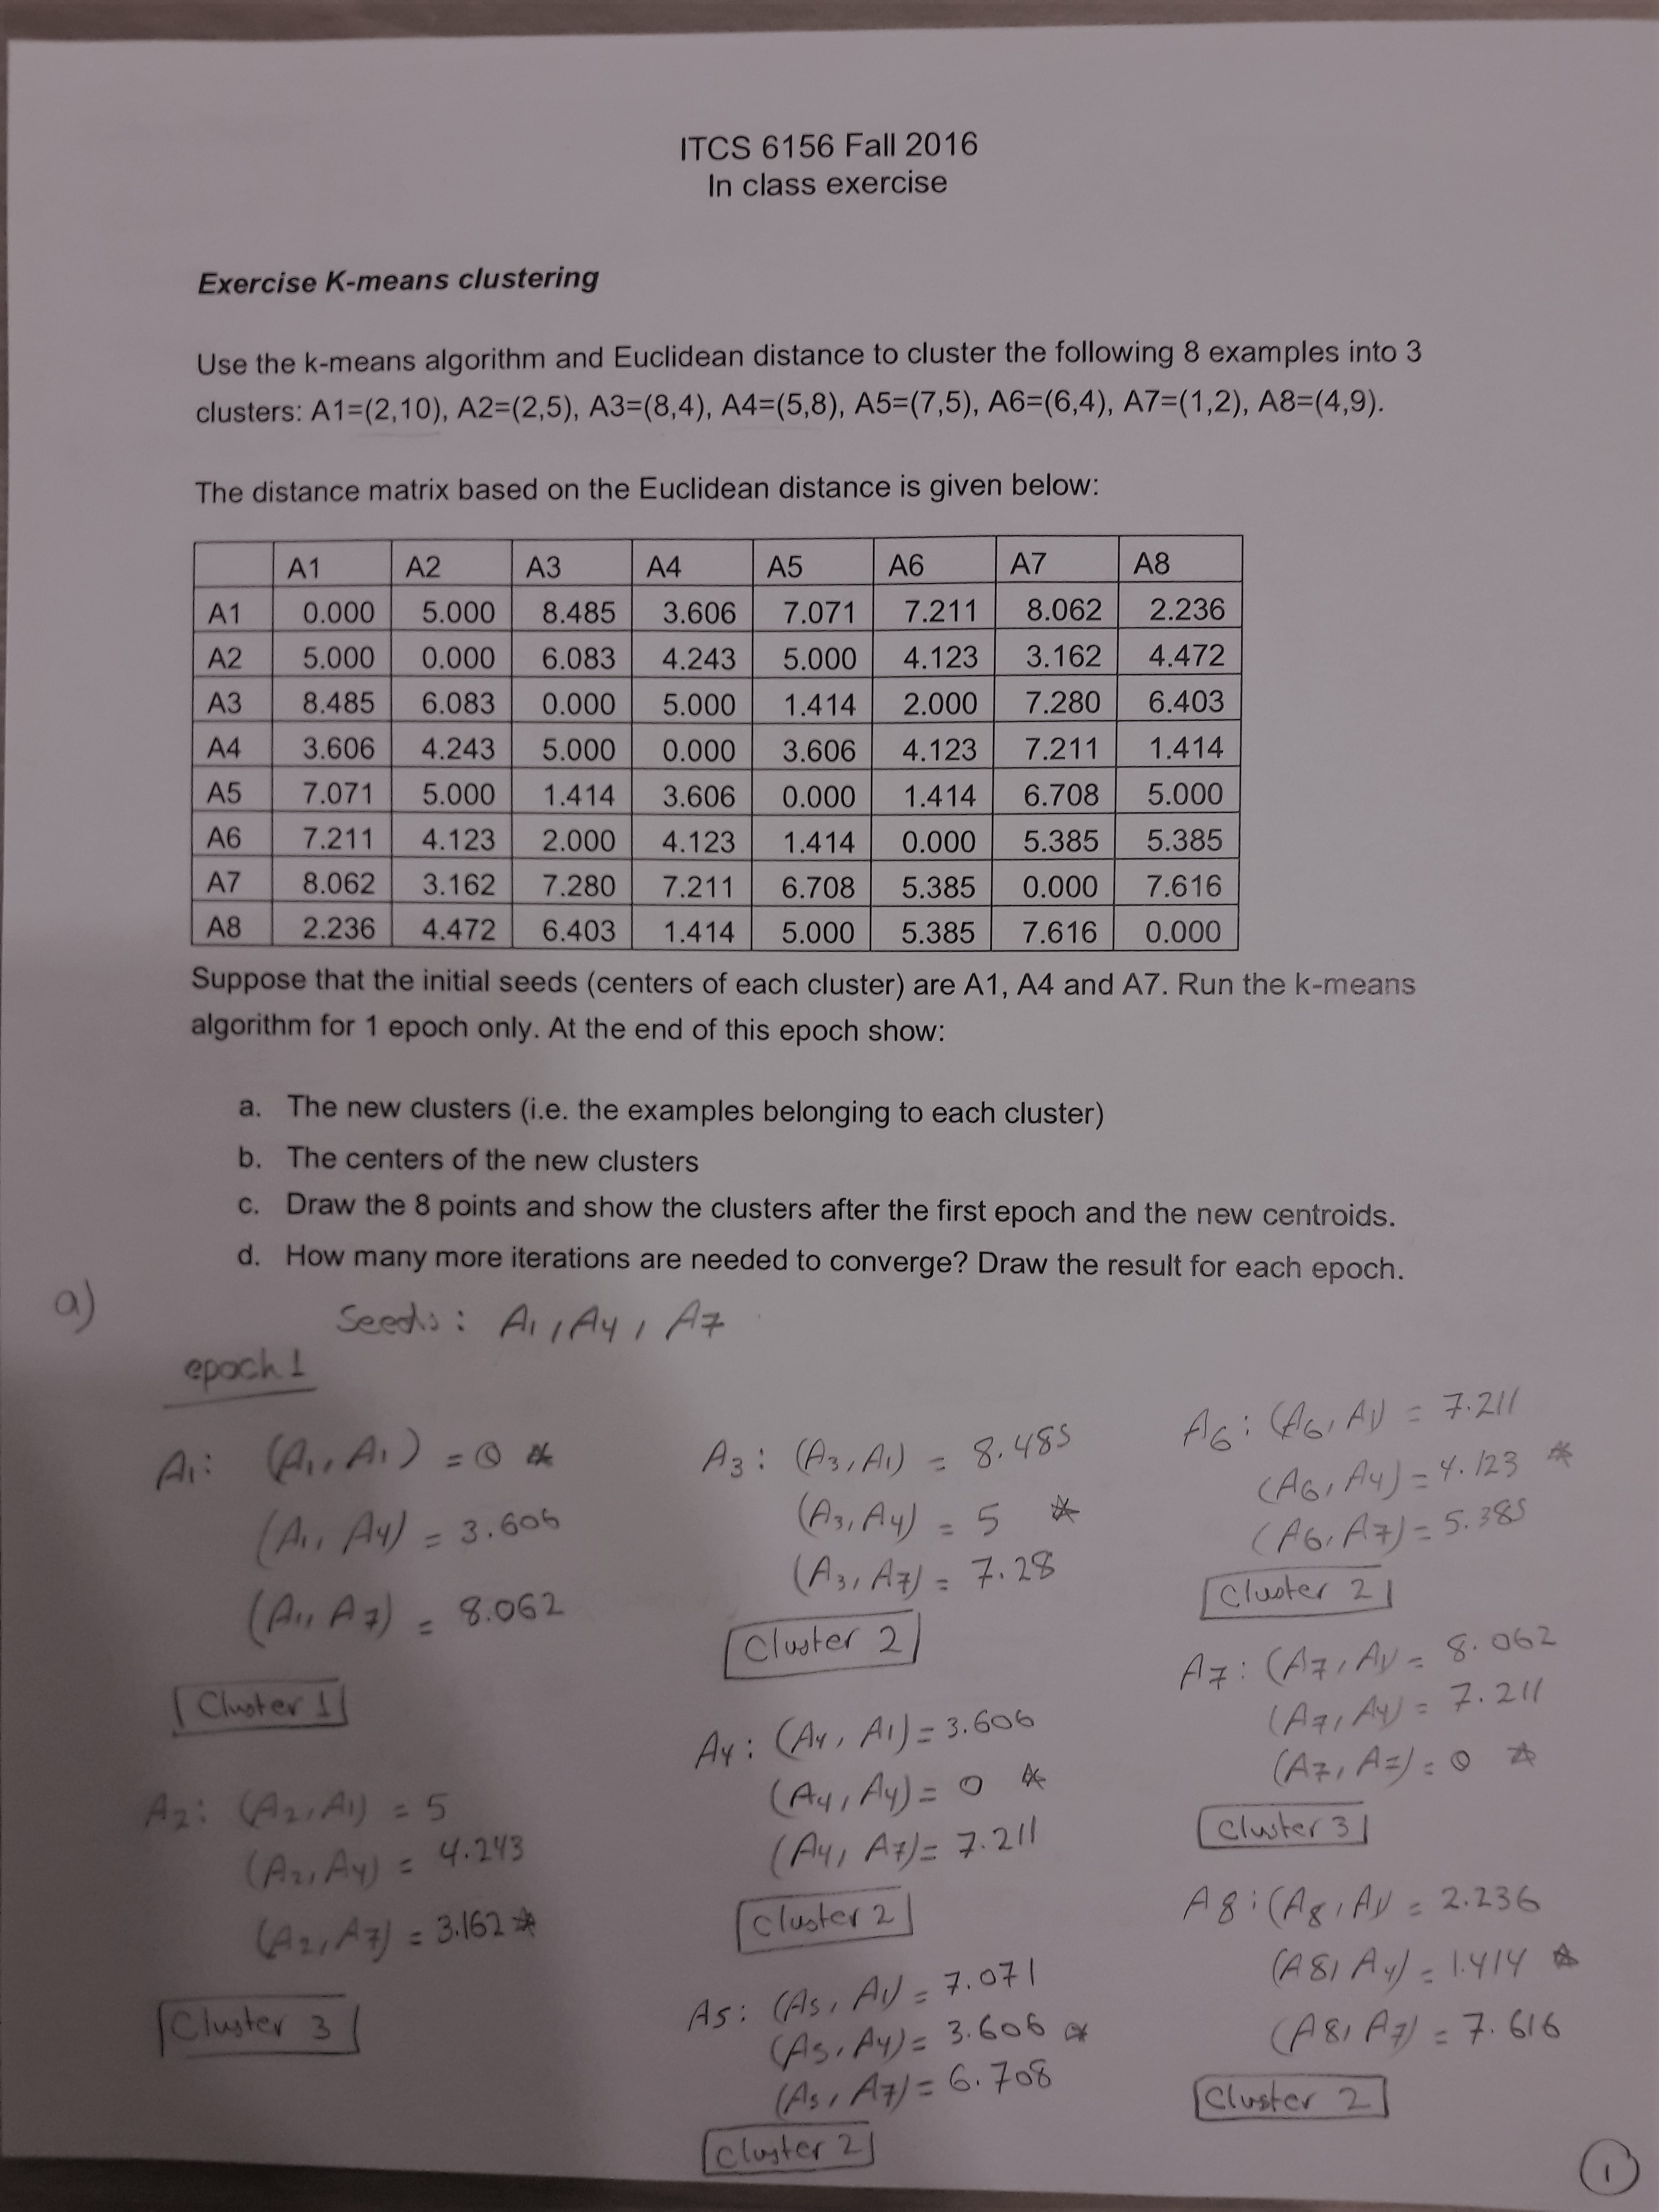 ITCS 6156 Fall 2016
In class exercise
Exercise K-means clustering
Use the k-means algorithm and Euclidean distance to cluster the following 8 examples into 3
clusters: A1=(2,10), A2=(2,5), A3=(8,4), A4=(5,8), A5=(7,5), A6=(6,4), A7=(1,2), A8=(4,9).
The distance matrix based on the Euclidean distance is given below:
A1 A2 A3 A4 A5 A6 A7 A8
A1 0.000 5.000 8.485 3.606 7.071 7.211 8.062 2.236
A2 5.000 0.000 6.083 4.243 5.000 4.123 3.162 4.472
A3 8.485 6.083 0.000 5.000 1.414 2.000 7.280 6.403
A4 3.606 4.243 5.000 0.000 3.606 4.123 7.211 1.414
A5 7.071 5.000 1.414 3.606 0.000 1.414 6.708 5.000
A6 7.211 4.123 2.000 4.123 1.414 0.000 5.385 5.385
A7 8.062 3.162 7.280 7.211 6.708 5.385 0.000 7.616
A8 2.236 4.472 6.403 1.414 5.000 5.385 7.616 0.000
Suppose that the initial seeds (centers of each cluster) are A1, A4 and A7. Run the k-means
algorithm for 1 epoch only. At the end of this epoch show:
a. The new clusters (i.e. the examples belonging to each cluster)
b. The centers of the new clusters
c. Draw the 8 points and show the clusters after the first epoch and the new centroids.
d. How many more iterations are needed to converge? Draw the result for each epoch.
a)
Seeds: A1, A4, A7
epoch 1
A1: (A1, A1) = 0 *
(A1, A4) = 3.606
(A1, A7) = 8.062
Cluster 1
A2: (A2, A1) = 5
(A2, A4) = 4.243
(A2, A7) = 3.162 *
Cluster 3
A3: (A3, A1) = 8.485
(A3, A4) = 5 *
(A3, A7) = 7.28
Cluster 2
A4: (A4, A1) = 3.606
(A4, A4) = 0 *
(A4, A7) = 7.211
Cluster 2
A5: (A5, A1) = 7.071
(A5, A4) = 3.606 *
(A5, A7) = 6.708
Cluster 2
A6: (A6, A1) = 7.211
(A6, A4) = 4.123 *
(A6, A7) = 5.385
Cluster 2
A7: (A7, A1) = 8.062
(A7, A4) = 7.211
(A7, A7) = 0 *
Cluster 3
A8: (A8, A1) = 2.236
(A8, A4) = 1.414 *
(A8, A7) = 7.616
Cluster 2
1